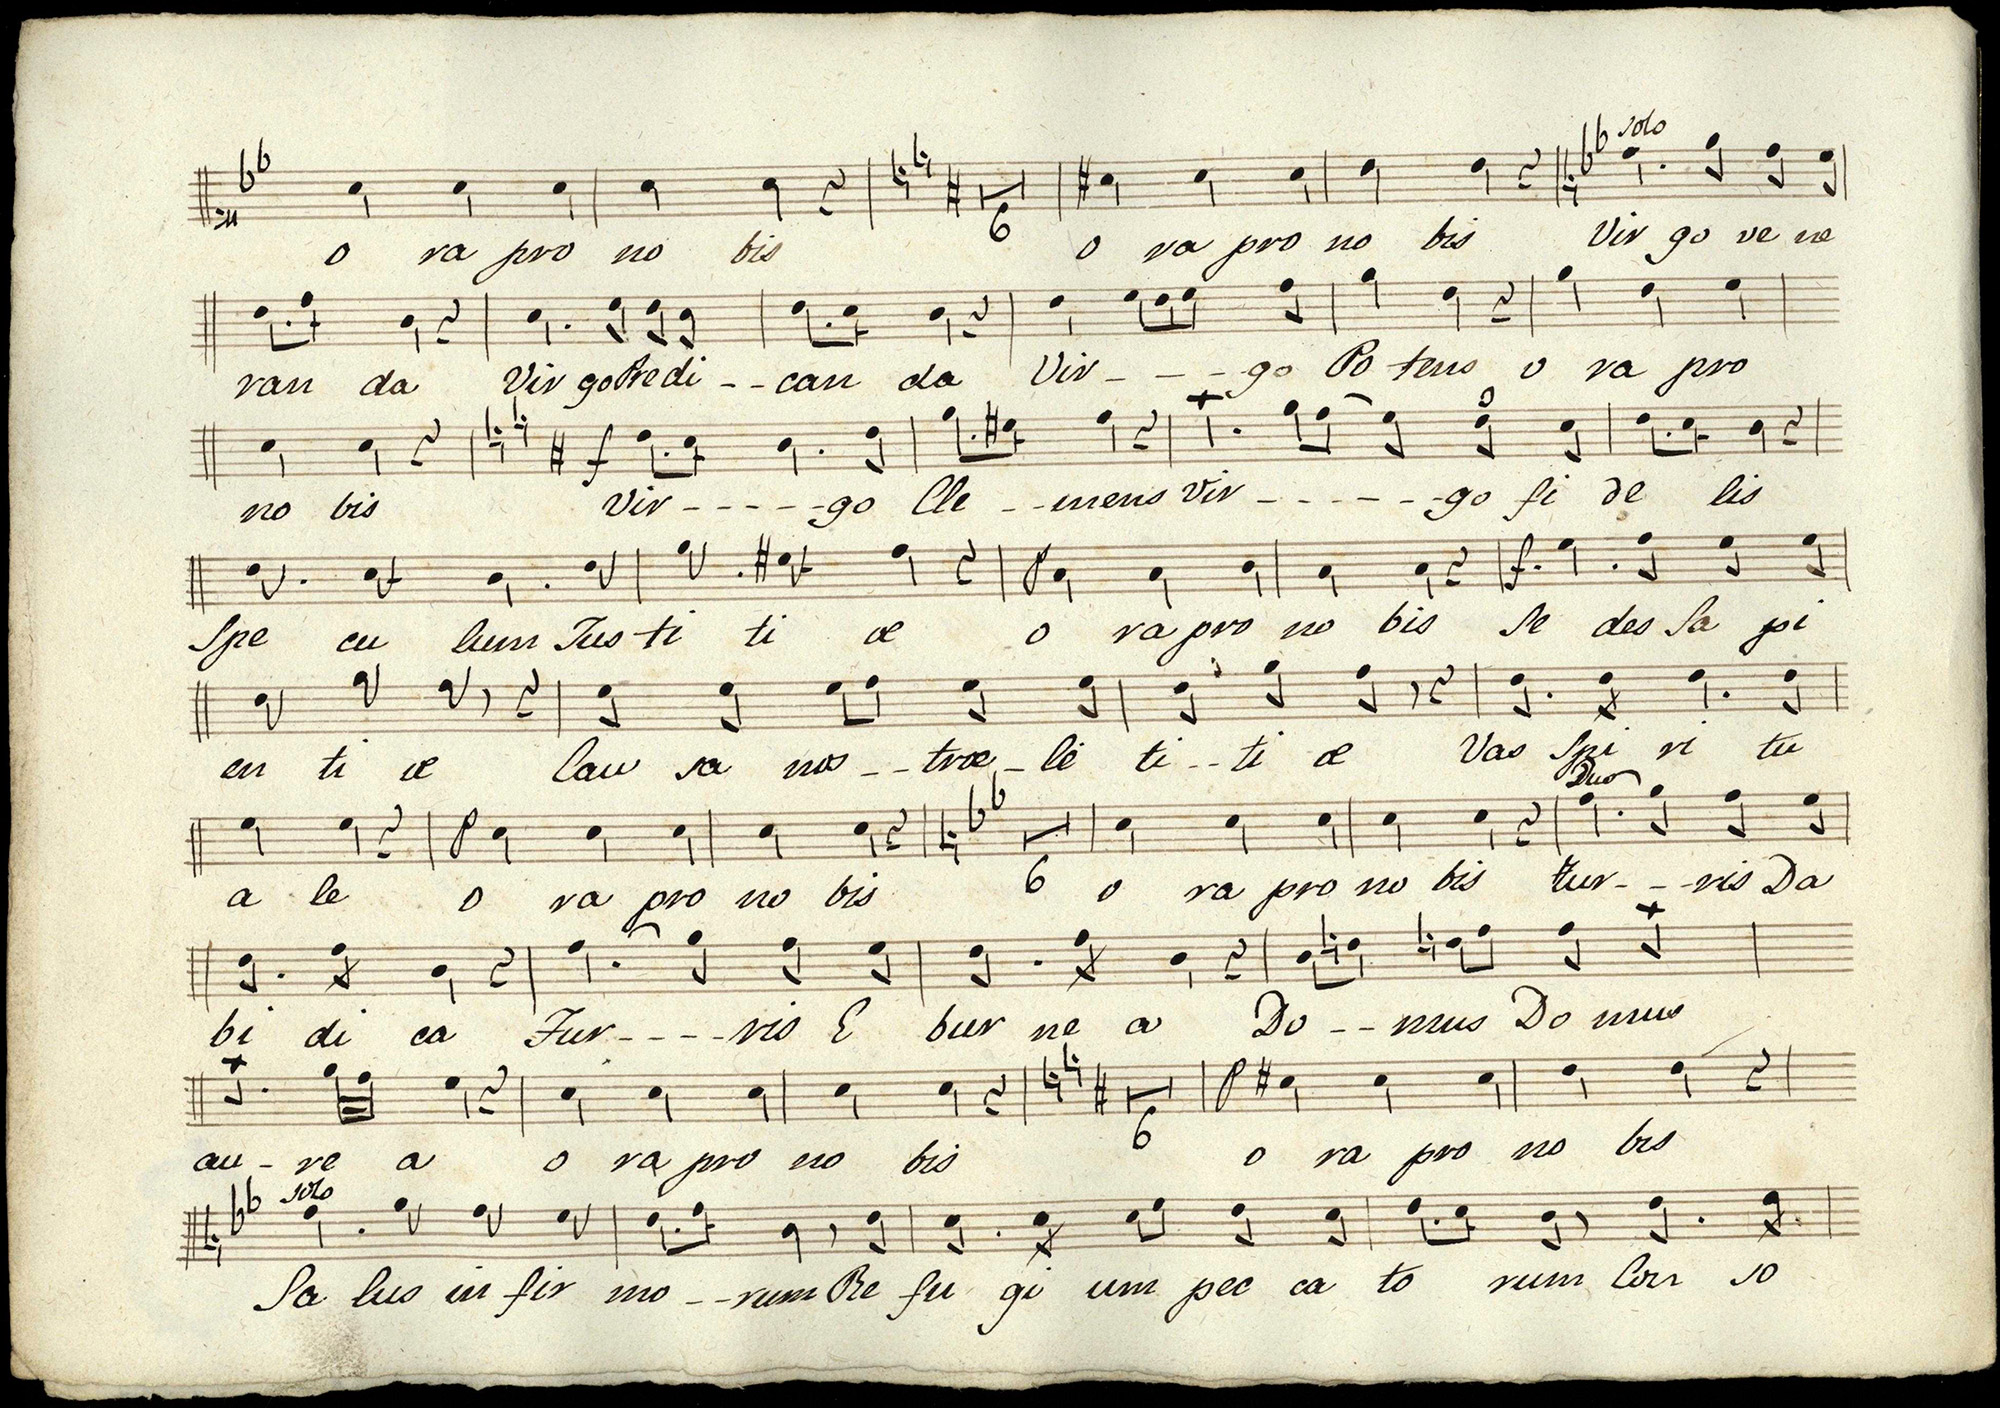 solo
o ra pro no bis 6 o ra pro no bis Vir go ve ne
ran da Vir go Predi - - can da Vir - - - go Po tens o ra pro
no bis f Vir - - - - - go Cle - - mens Vir - - - - - go fi de lis
p f.
Spe cu lum Jus ti ti æ o ra pro no bis Se des Sa pi
en ti æ Cau sa nos - - træ - lè ti - - ti æ Vas Spi ri tu
p Duo
a le o ra pro no bis 6 o ra pro no bis tur - - - ris Da
bi di ca Tur - - - - ris E bur ne a Do - - mus Do mus
p
au - re a o ra pro no bis 6 o ra pro no bis
solo
Sa lus in fir mo - - rum Re fu gi um pec ca to rum Con so